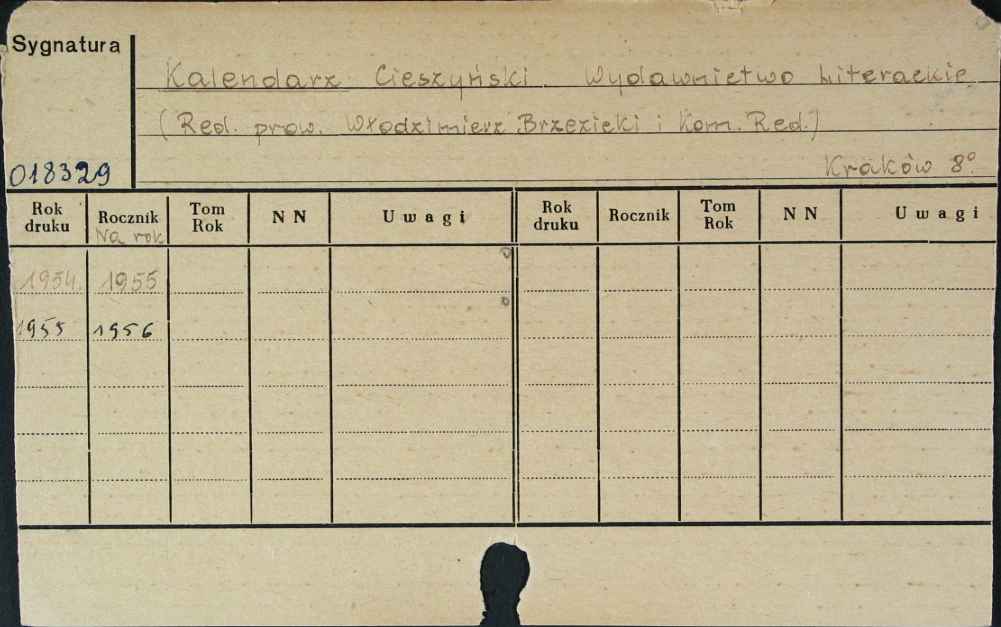 Sygnatura
Kalendarz Cieszyński. Wydawnictwo Literackie
(Red. prow. Włodzimierz Brzezicki i Kom. Red.)
018329
Kraków 8°.
Rok druku Rocznik Na rok Tom Rok NN Uwagi Rok druku Rocznik Tom Rok NN Uwagi
1954. 1955
1955 1956